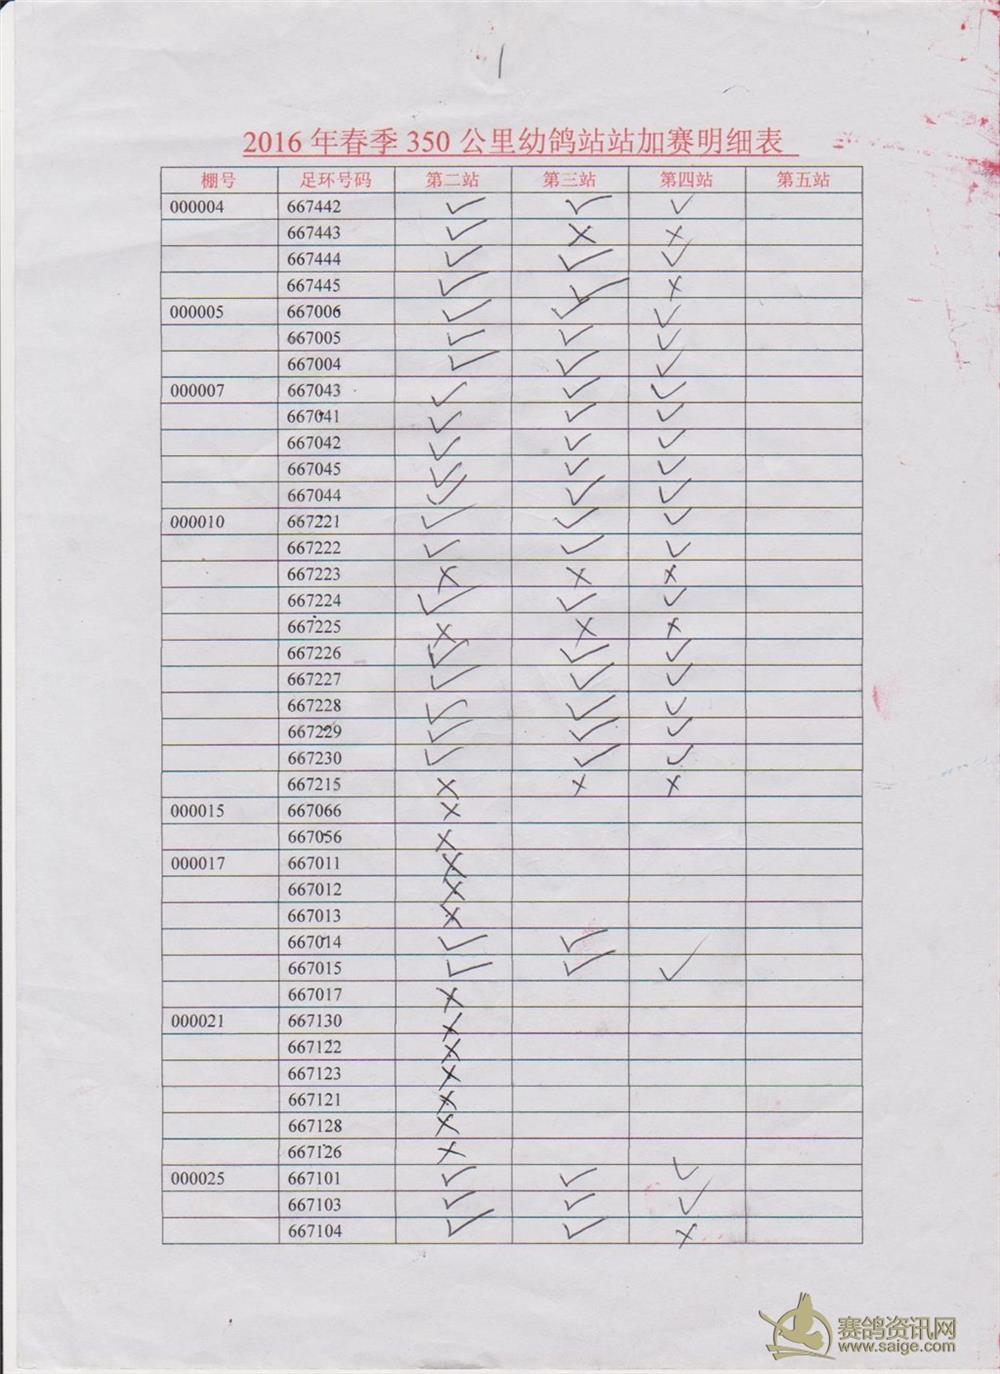 1
2016 年春季 350 公里幼鸽站站加赛明细表
棚号 足环号码 第二站 第三站 第四站 第五站
000004 667442 ✓ ✓ ✓
667443 ✓ × ×
667444 ✓ ✓ ✓
667445 ✓ ✓ ×
000005 667006 ✓ ✓ ✓
667005 ✓ ✓ ✓
667004 ✓ ✓ ✓
000007 667043 ✓ ✓ ✓
667041 ✓ ✓ ✓
667042 ✓ ✓ ✓
667045 ✓ ✓ ✓
667044 ✓ ✓ ✓
000010 667221 ✓ ✓ ✓
667222 ✓ ✓ ✓
667223 × × ×
667224 ✓ ✓ ✓
667225 × × ×
667226 ✓ ✓ ✓
667227 ✓ ✓ ✓
667228 ✓ ✓ ✓
667229 ✓ ✓ ✓
667230 ✓ ✓ ✓
667215 × × ×
000015 667066 ×
667056 ×
000017 667011 ×
667012 ×
667013 ×
667014 ✓ ✓
667015 ✓ ✓ ✓
667017 ×
000021 667130 ×
667122 ×
667123 ×
667121 ×
667128 ×
667126 ×
000025 667101 ✓ ✓ ✓
667103 ✓ ✓ ✓
667104 ✓ ✓ ×
赛鸽资讯网
www.saige.com